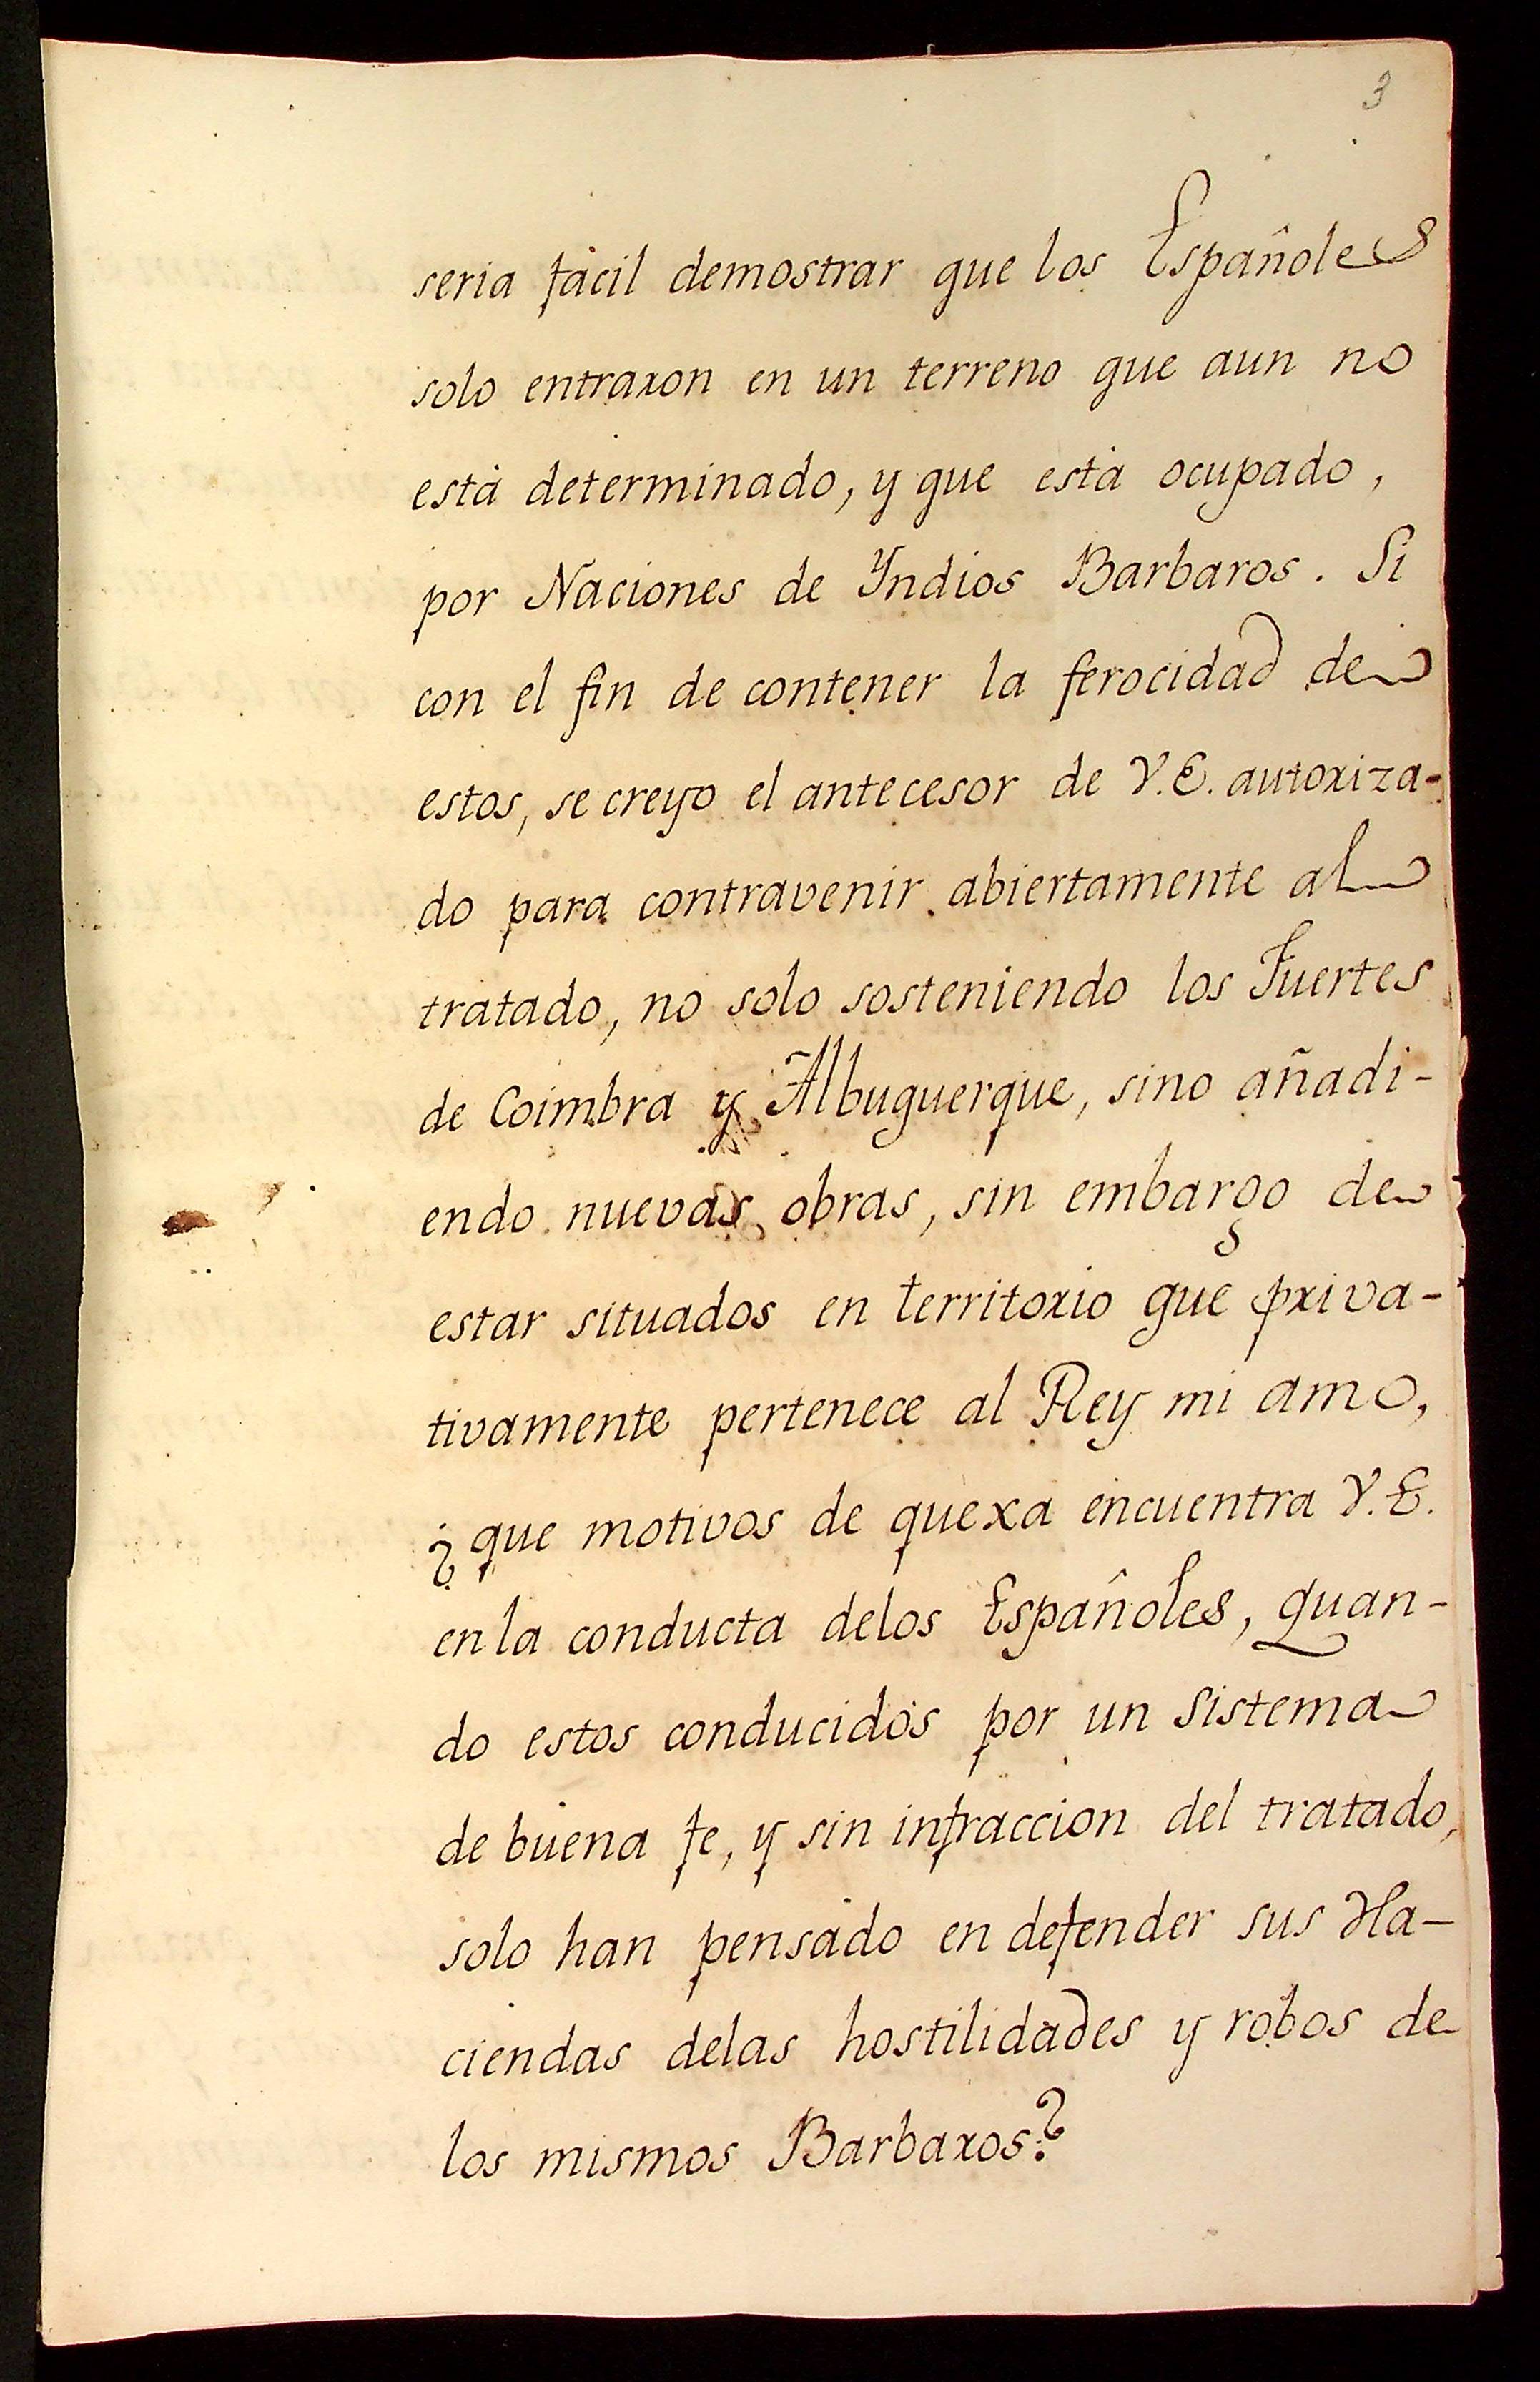 3
seria fàcil demostrar que los Españoles
solo entraron en un terreno que aun no
està determinado, y que està ocupado,
por Naciones de Yndios Barbaros. Si
con el fin de contener la ferocidad de
estos, se creyo el antecesor de V.E. autoriza-
do para contravenir abiertamente al
tratado, no solo sosteniendo los Fuertes
de Coimbra y Albuquerque, sino añadi-
endo nuevas obras, sin embargo de
estar situados en territorio que priva-
tivamente pertenece al Rey mi amo,
¿que motivos de quexa encuentra V.E.
en la conducta delos Españoles, quan-
do estos conducidos por un sistema
de buena fe, y sin infraccion del tratado,
solo han pensado en defender sus Ha-
ciendas delas hostilidades y robos de
los mismos Barbaros?